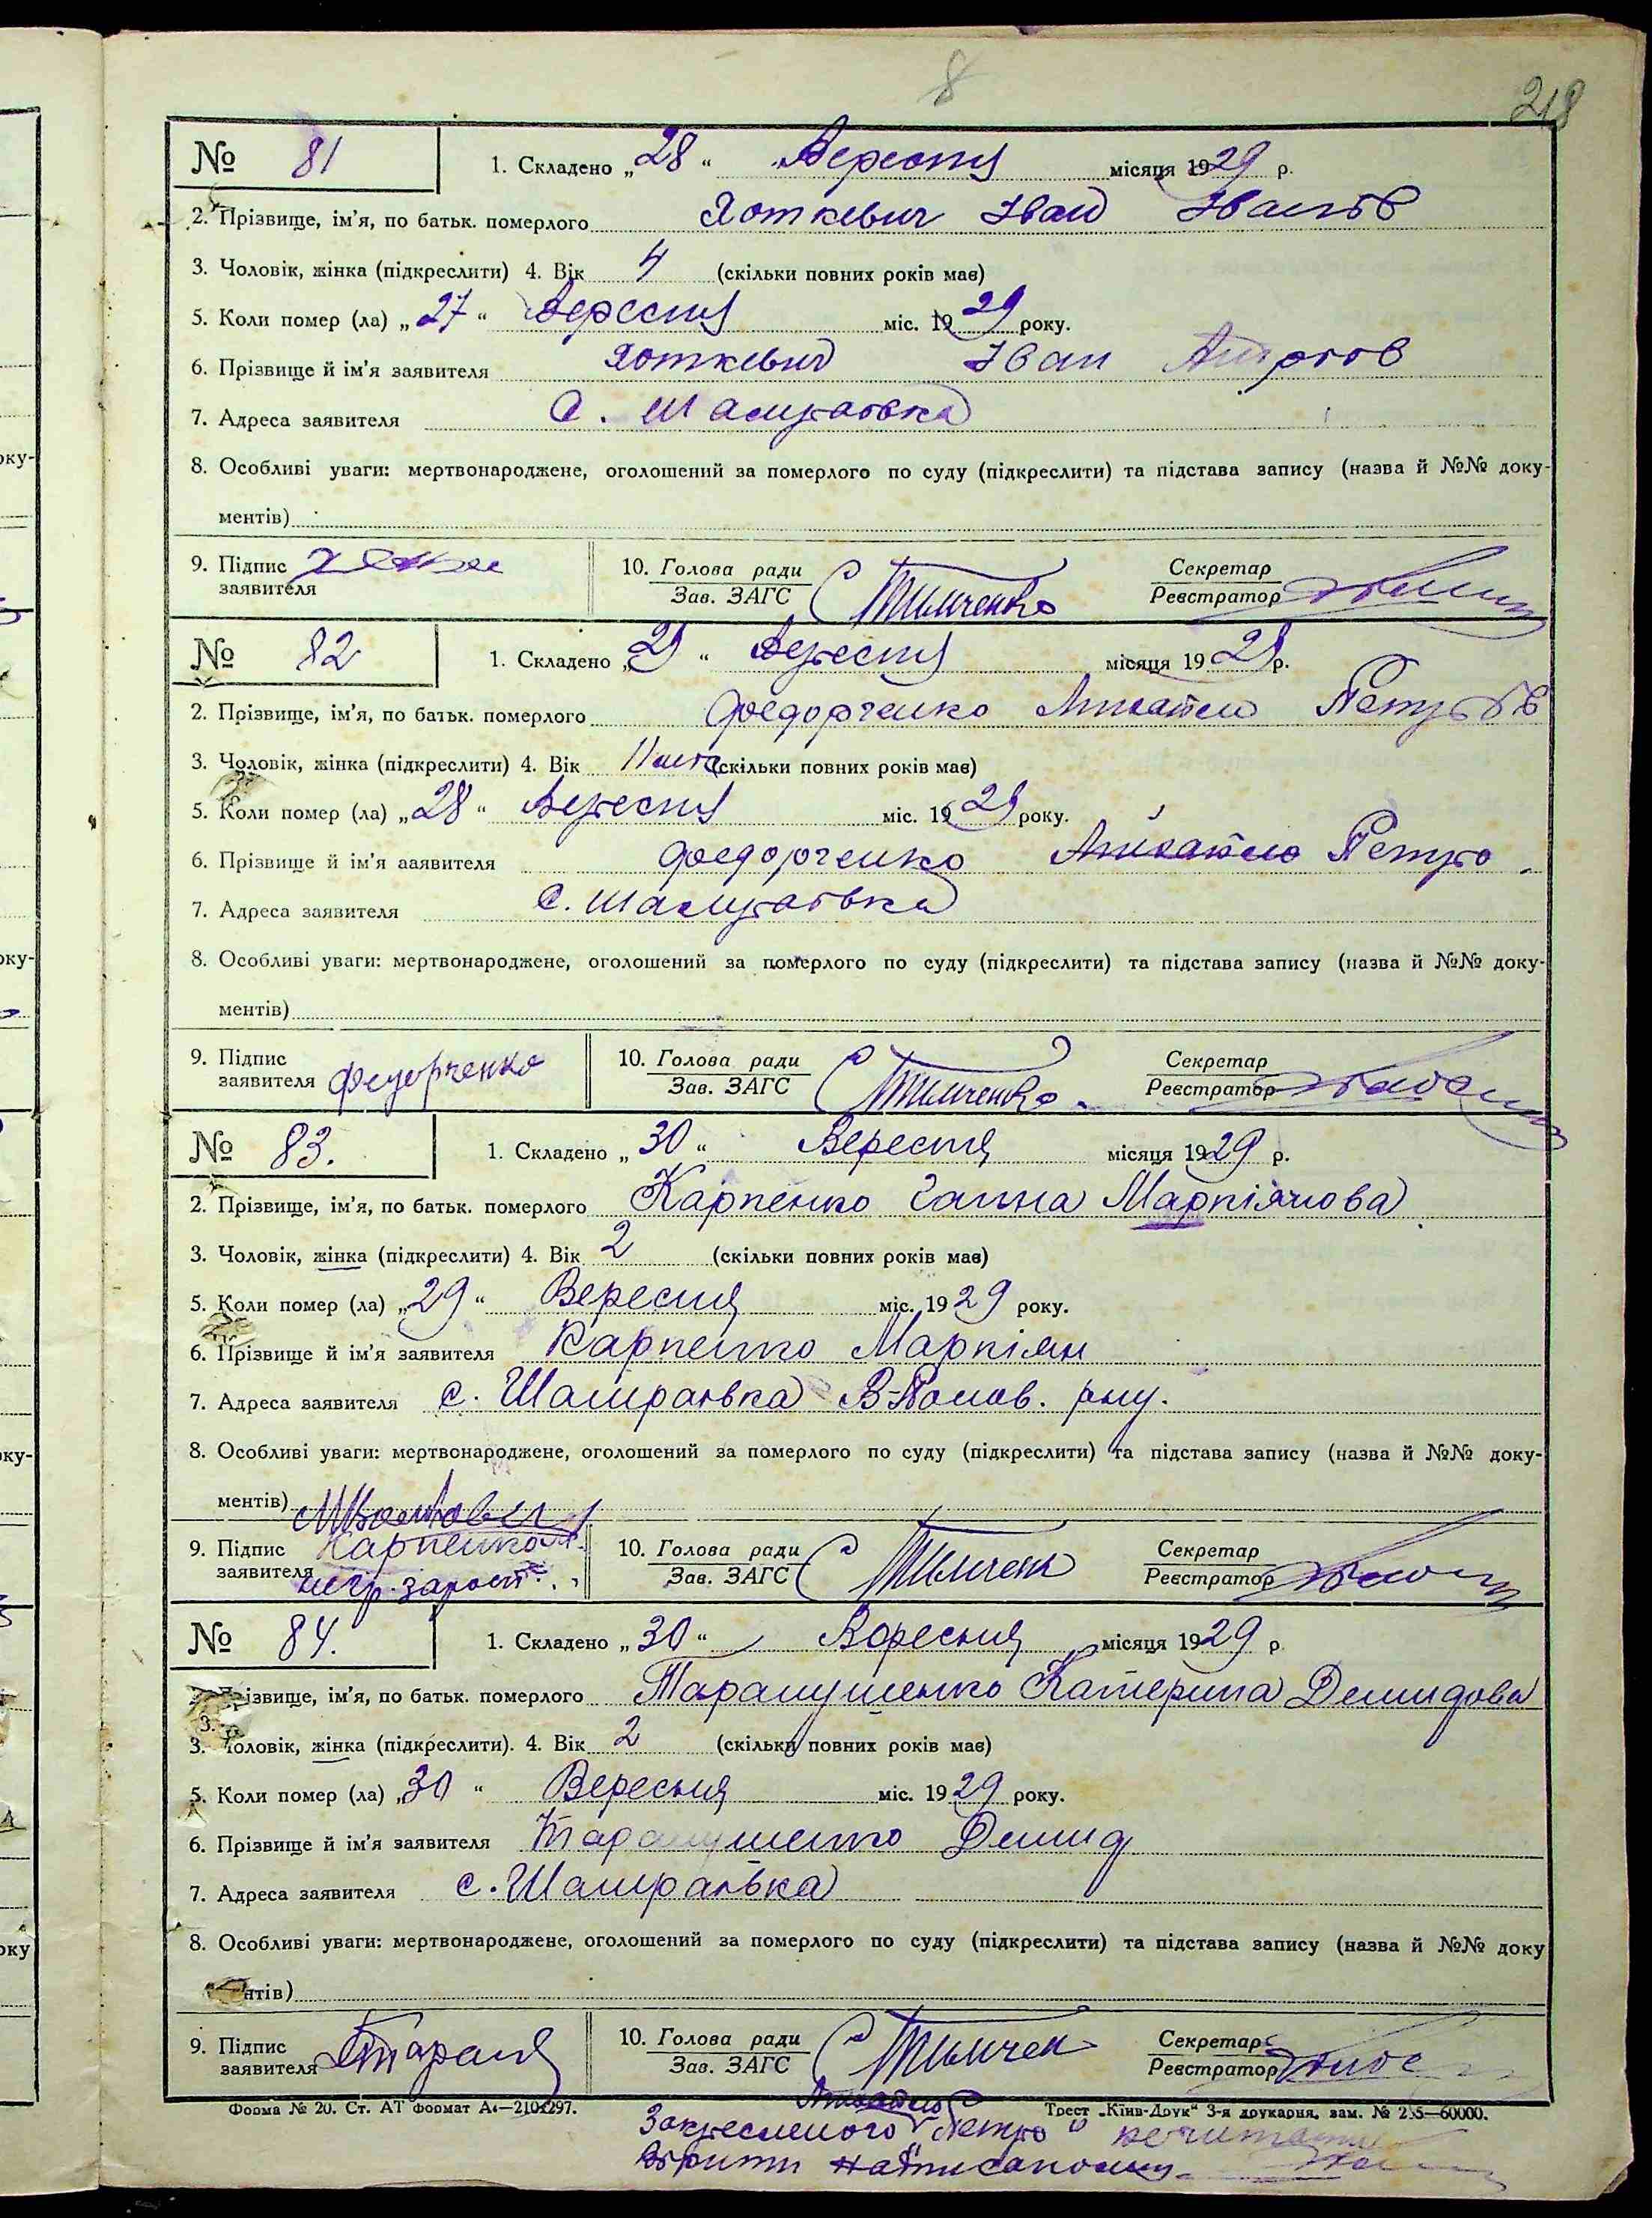 8
218
№ 81 1. Складено „28“ Вересня місяця 1929 р.
2. Прізвище, ім'я, по батьк. померлого Хоткевич Іван Іванов
3. Чоловік, жінка (підкреслити) 4. Вік 4 (скільки повних років має)
5. Коли помер (ла) „27“ Вересня міс. 1929 року.
6. Прізвище й ім'я заявителя Хоткевич Іван
7. Адреса заявителя с. Шамраовка
8. Особливі уваги: мертвонароджене, оголошений за померлого по суду (підкреслити) та підстава запису (назва й №№ доку-
ментів)
9. Підпис заявителя 10. Голова ради Зав. ЗАГС Тимченко Секретар Реєстратор
№ 82 1. Складено „29“ Вересня місяця 1929 р.
2. Прізвище, ім'я, по батьк. померлого Федорченко Петров
3. Чоловік, жінка (підкреслити) 4. Вік (скільки повних років має)
5. Коли помер (ла) „28“ Вересня міс. 1929 року.
6. Прізвище й ім'я ааявителя Федорченко Петро
7. Адреса заявителя с. Шамраовка
8. Особливі уваги: мертвонароджене, оголошений за померлого по суду (підкреслити) та підстава запису (назва й №№ доку-
ментів)
9. Підпис заявителя Федорченко 10. Голова ради Зав. ЗАГС Тимченко Секретар Реєстратор
№ 83. 1. Складено „30“ Вересня місяця 1929 р.
2. Прізвище, ім'я, по батьк. померлого Карпенко Ганна Маркіянова
3. Чоловік, жінка (підкреслити) 4. Вік 2 (скільки повних років має)
5. Коли помер (ла) „29“ Вересня міс. 1929 року.
6. Прізвище й ім'я заявителя Карпенко Маркіян
7. Адреса заявителя с. Шамраовка В-Полов. р-ну.
8. Особливі уваги: мертвонароджене, оголошений за померлого по суду (підкреслити) та підстава запису (назва й №№ доку-
ментів)
9. Підпис заявителя Карпенко 10. Голова ради Зав. ЗАГС Тимченко Секретар Реєстратор
№ 84. 1. Складено „30“ Вересня місяця 1929 р.
ізвище, ім'я, по батьк. померлого Таранушенко Катерина Демидова
3. Чоловік, жінка (підкреслити). 4. Вік 2 (скільки повних років має)
5. Коли помер (ла) „30“ Вересня міс. 1929 року.
6. Прізвище й ім'я заявителя Таранушенко Демид
7. Адреса заявителя с. Шамраовка
8. Особливі уваги: мертвонароджене, оголошений за померлого по суду (підкреслити) та підстава запису (назва й №№ доку
нтів)
9. Підпис заявителя Таран 10. Голова ради Зав. ЗАГС Тимчен Секретар Реєстратор
Форма № 20. Ст. АТ Формат А4—210×297. Трест „Київ-Друк“ 3-я друкарня, зам. № 255—60000.
Закресленого Петро не читати
вірити написаному